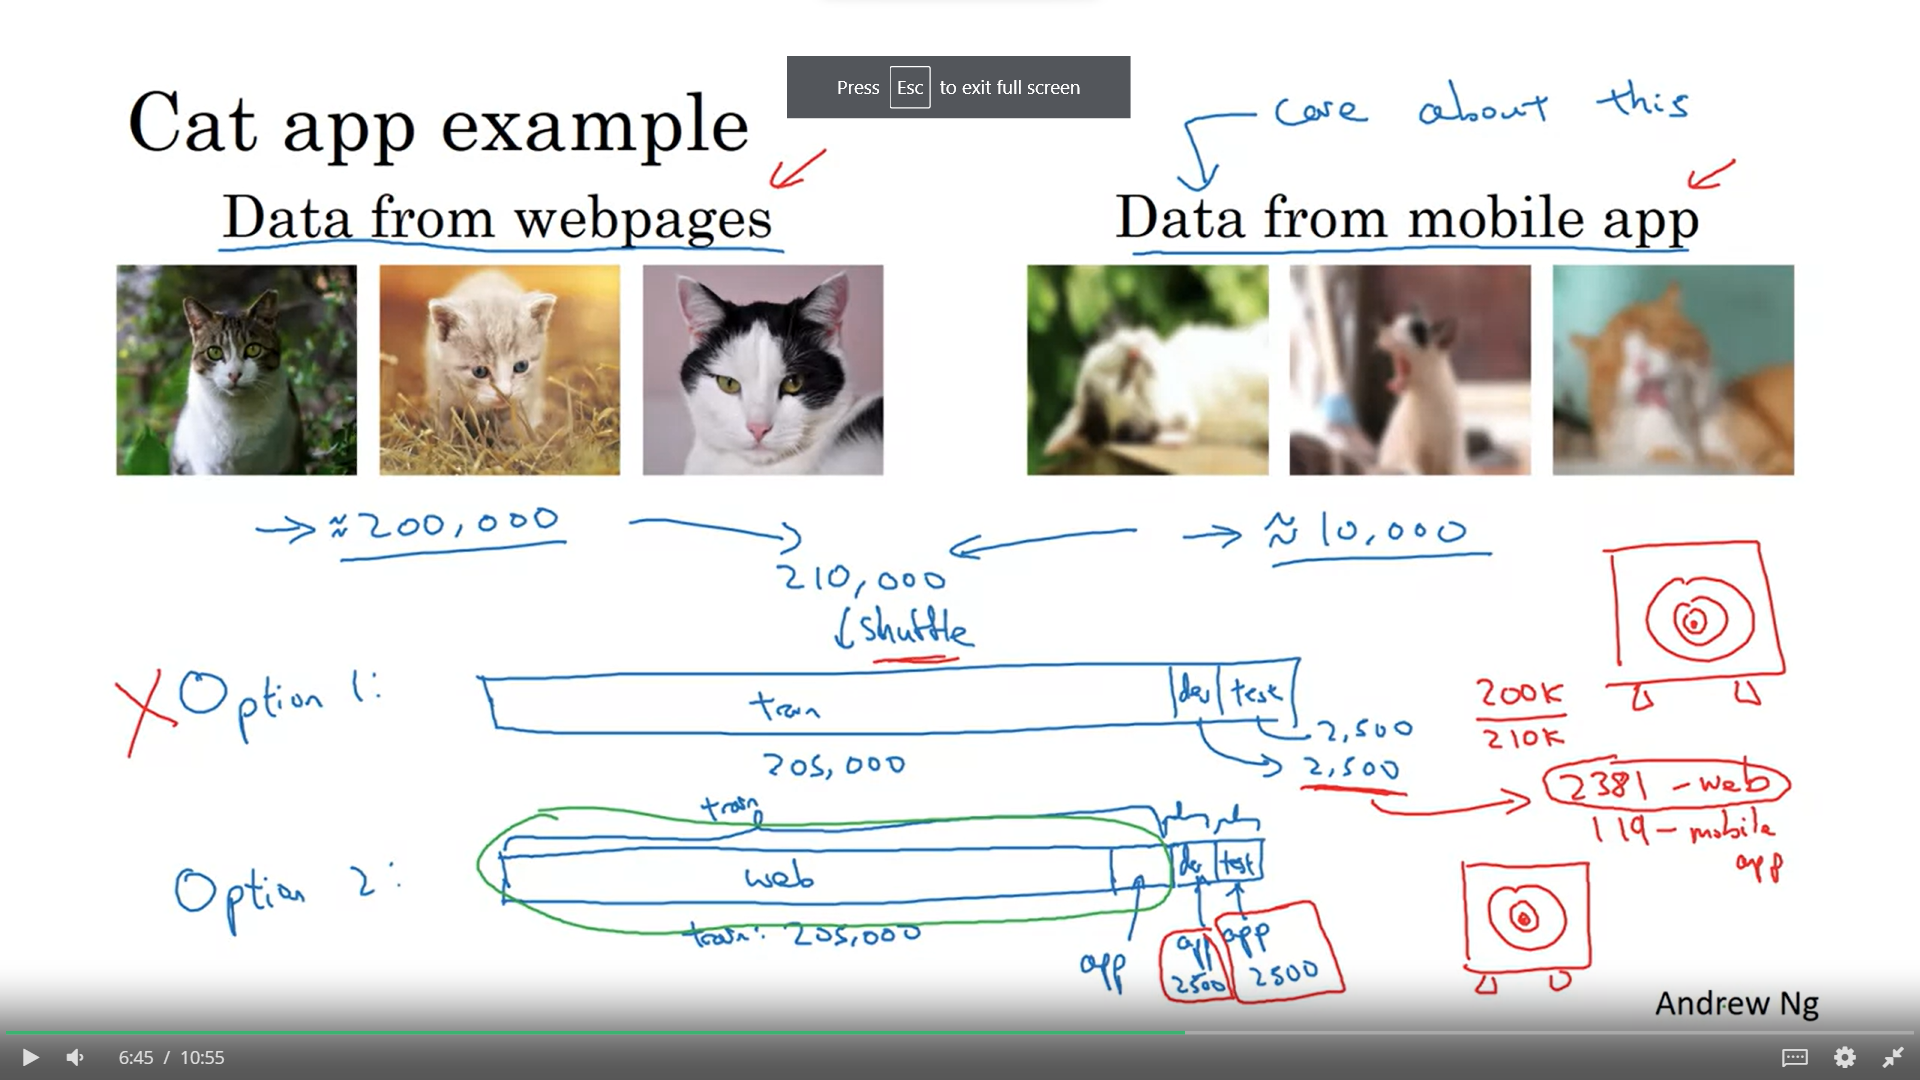 Press Esc to exit full screen
care about this
Cat app example
Data from webpages
Data from mobile app
→ ≈ 200,000
→ ≈ 10,000
210,000
↓ shuffle
X Option 1:
train
dev
test
2,500
2,500
205,000
200K
210K
2381 - web
119 - mobile
app
train
Option 2:
web
dev
test
train: 205,000
app
app
2500
app
2500
Andrew Ng
6:45 / 10:55